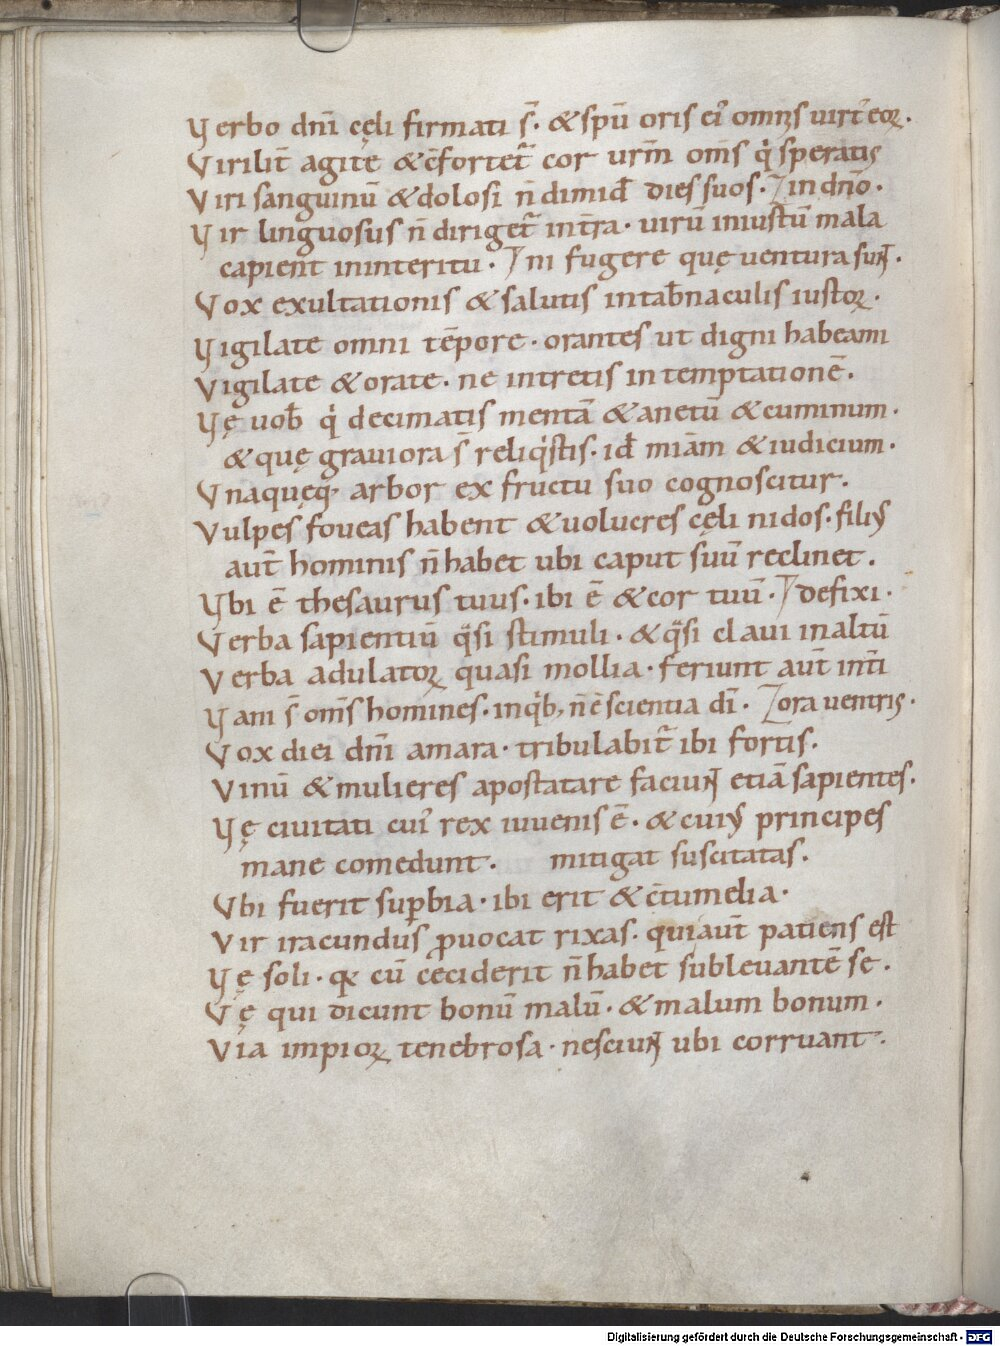 Verbo dnī cęli firmati s̄. & spū oris ei᾽ omnis uirt᾽ eoꝝ.
Virilit̄ agite & c̄fortet᷑ cor urm̄ om̄s q̇ speratis
Viri sanguinū & dolosi n̄ dimid̄ dies suos. in dn̄o.
Vir linguosus n̄ diriget᷑ in tr̄a. uirū iniustū mala
capient in interitu. ni fugere quę uentura sunt.
Vox exultationis & salutis in tab̄naculis iustoꝝ.
Vigilate omni tēpore. orantes ut digni habeami
Vigilate & orate. ne intretis in temptationē.
Vę uob̄ q̇ decimatis mentā & anetū & cuminum.
& quę grauiora s̄ reliq̇stis. id̄ miām & iudicium.
Vnaquęq; arbor ex fructu suo cognoscitur.
Vulpes foueas habent & uolucres cęli nidos. filiꝰ
aut̄ hominis n̄ habet ubi caput suū reclinet.
Vbi ē thesaurus tuus. ibi ē & cor tuū. defixi.
Verba sapientiū qͣsi stimuli. & qͣsi claui in altū
Verba adulatoꝝ quasi mollia. feriunt aut̄ int̄i
Vani s̄ om̄s homines. in q̇b; n̄ ē scientia dī. ora uentris.
Vox diei dnī amara. tribulabit᷑ ibi fortis.
Vinū & mulieres apostatare faciunt etiā sapientes.
Vę ciuitati cui᾽ rex iuuenis ē. & cuiꝰ principes
mane comedunt. mitigat suscitatas.
Vbi fuerit suꝑbia. ibi erit & c̄tumelia.
Vir iracundus ꝓuocat rixas. qui aut̄ patiens est
Vę soli. qꝛ cū ceciderit n̄ habet subleuantē se.
Vę qui dicunt bonū malū. & malum bonum.
Via impioꝝ tenebrosa. nesciunt ubi corruant.
Digitalisierung gefördert durch die Deutsche Forschungsgemeinschaft - DFG